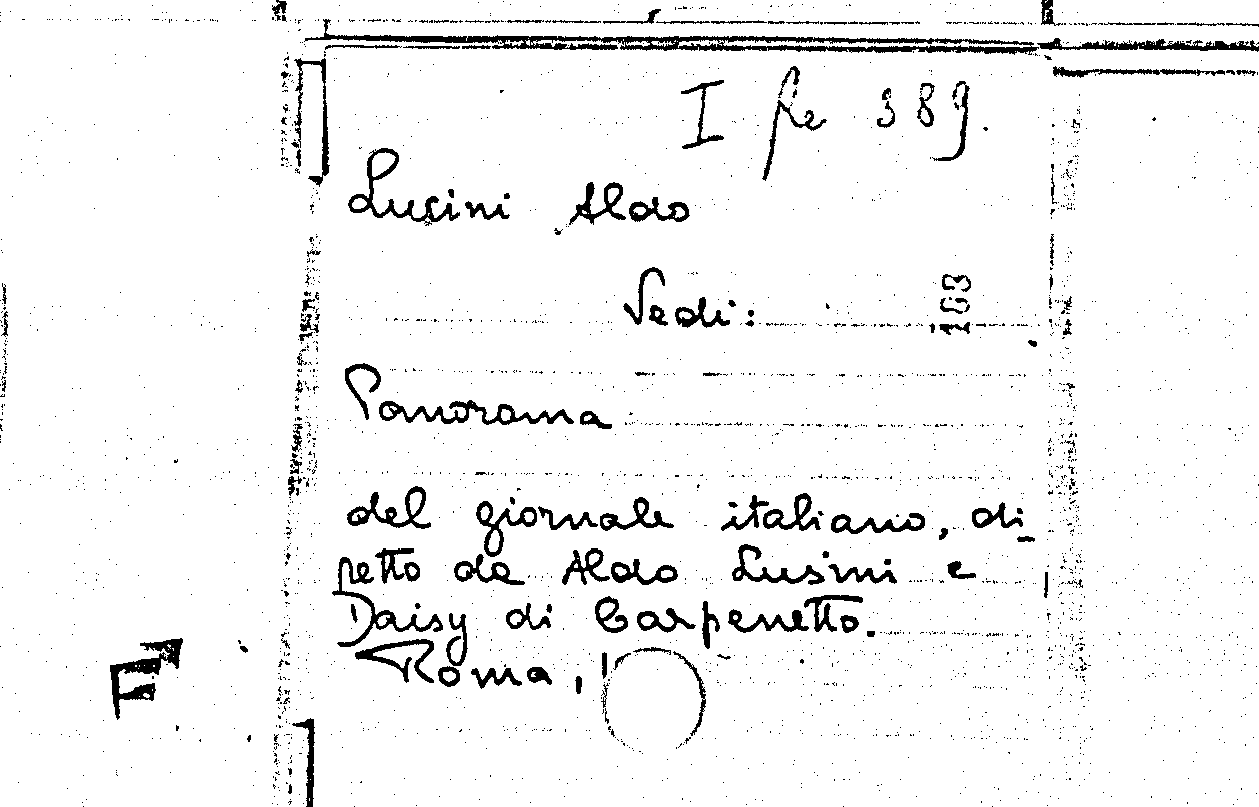 I fle 389.
Lusini Aldo
Vedi:
163
Panorama
del giornale italiano, di_
retto da Aldo Lusini e
Daisy di Carpenetto.
Roma, 1
F